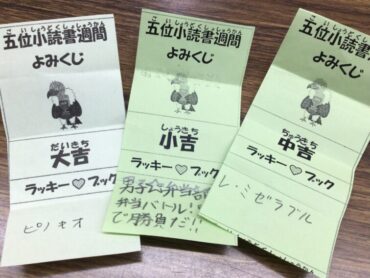 五位小読書週間
よみくじ
だいきち
大吉
ラッキー♡ブック
ピノキオ
ごいしょうどくしょしゅうかん
五位小読書週間
よみくじ
しょうきち
小吉
ラッキー♡ブック
男子☆弁当部
弁当バトル!野菜
で勝負だ!!
ごいしょうどくしょしゅうかん
五位小読書週間
よみくじ
ちゅうきち
中吉
ラッキー♡ブック
レ・ミゼラブル